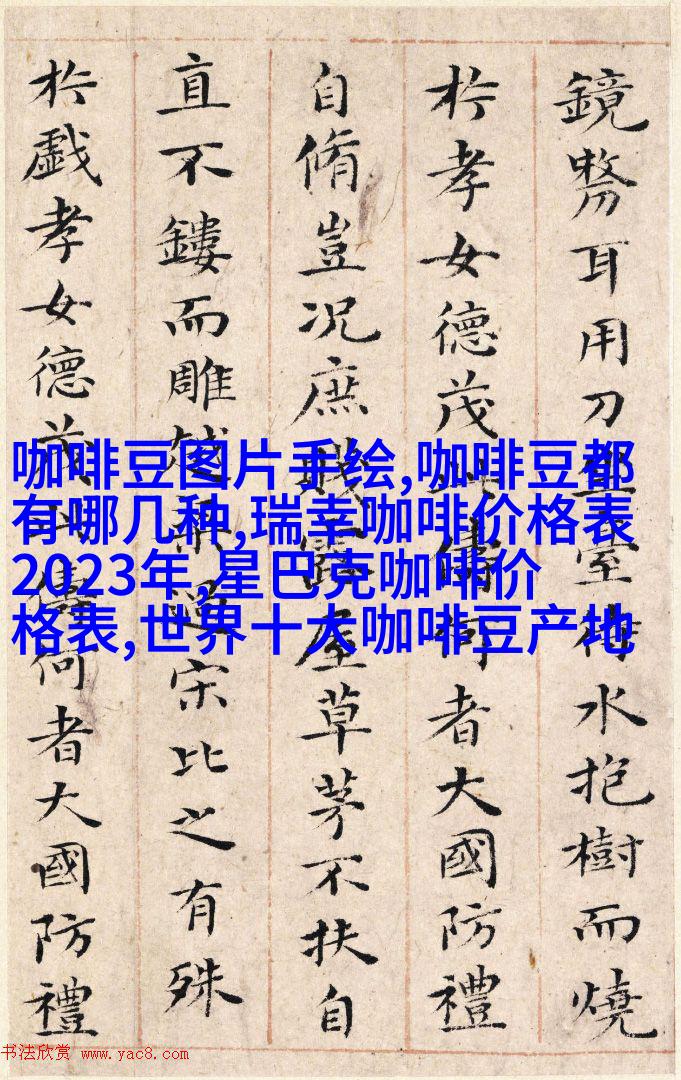 鏡剺耳用刀坐臺待水抱樹而燒
扵孝女德茂此儔何者大國防禮
自脩豈况庶賤露屋草茅不扶自
直不鏤而雕越梁過宋比之有殊
扵戯孝女德茂此儔何者大國防禮
咖啡豆图片手绘,咖啡豆都
有哪几种,瑞幸咖啡价格表
2023年,星巴克咖啡价
格表,世界十大咖啡豆产地
书法欣赏 www.yac8.com